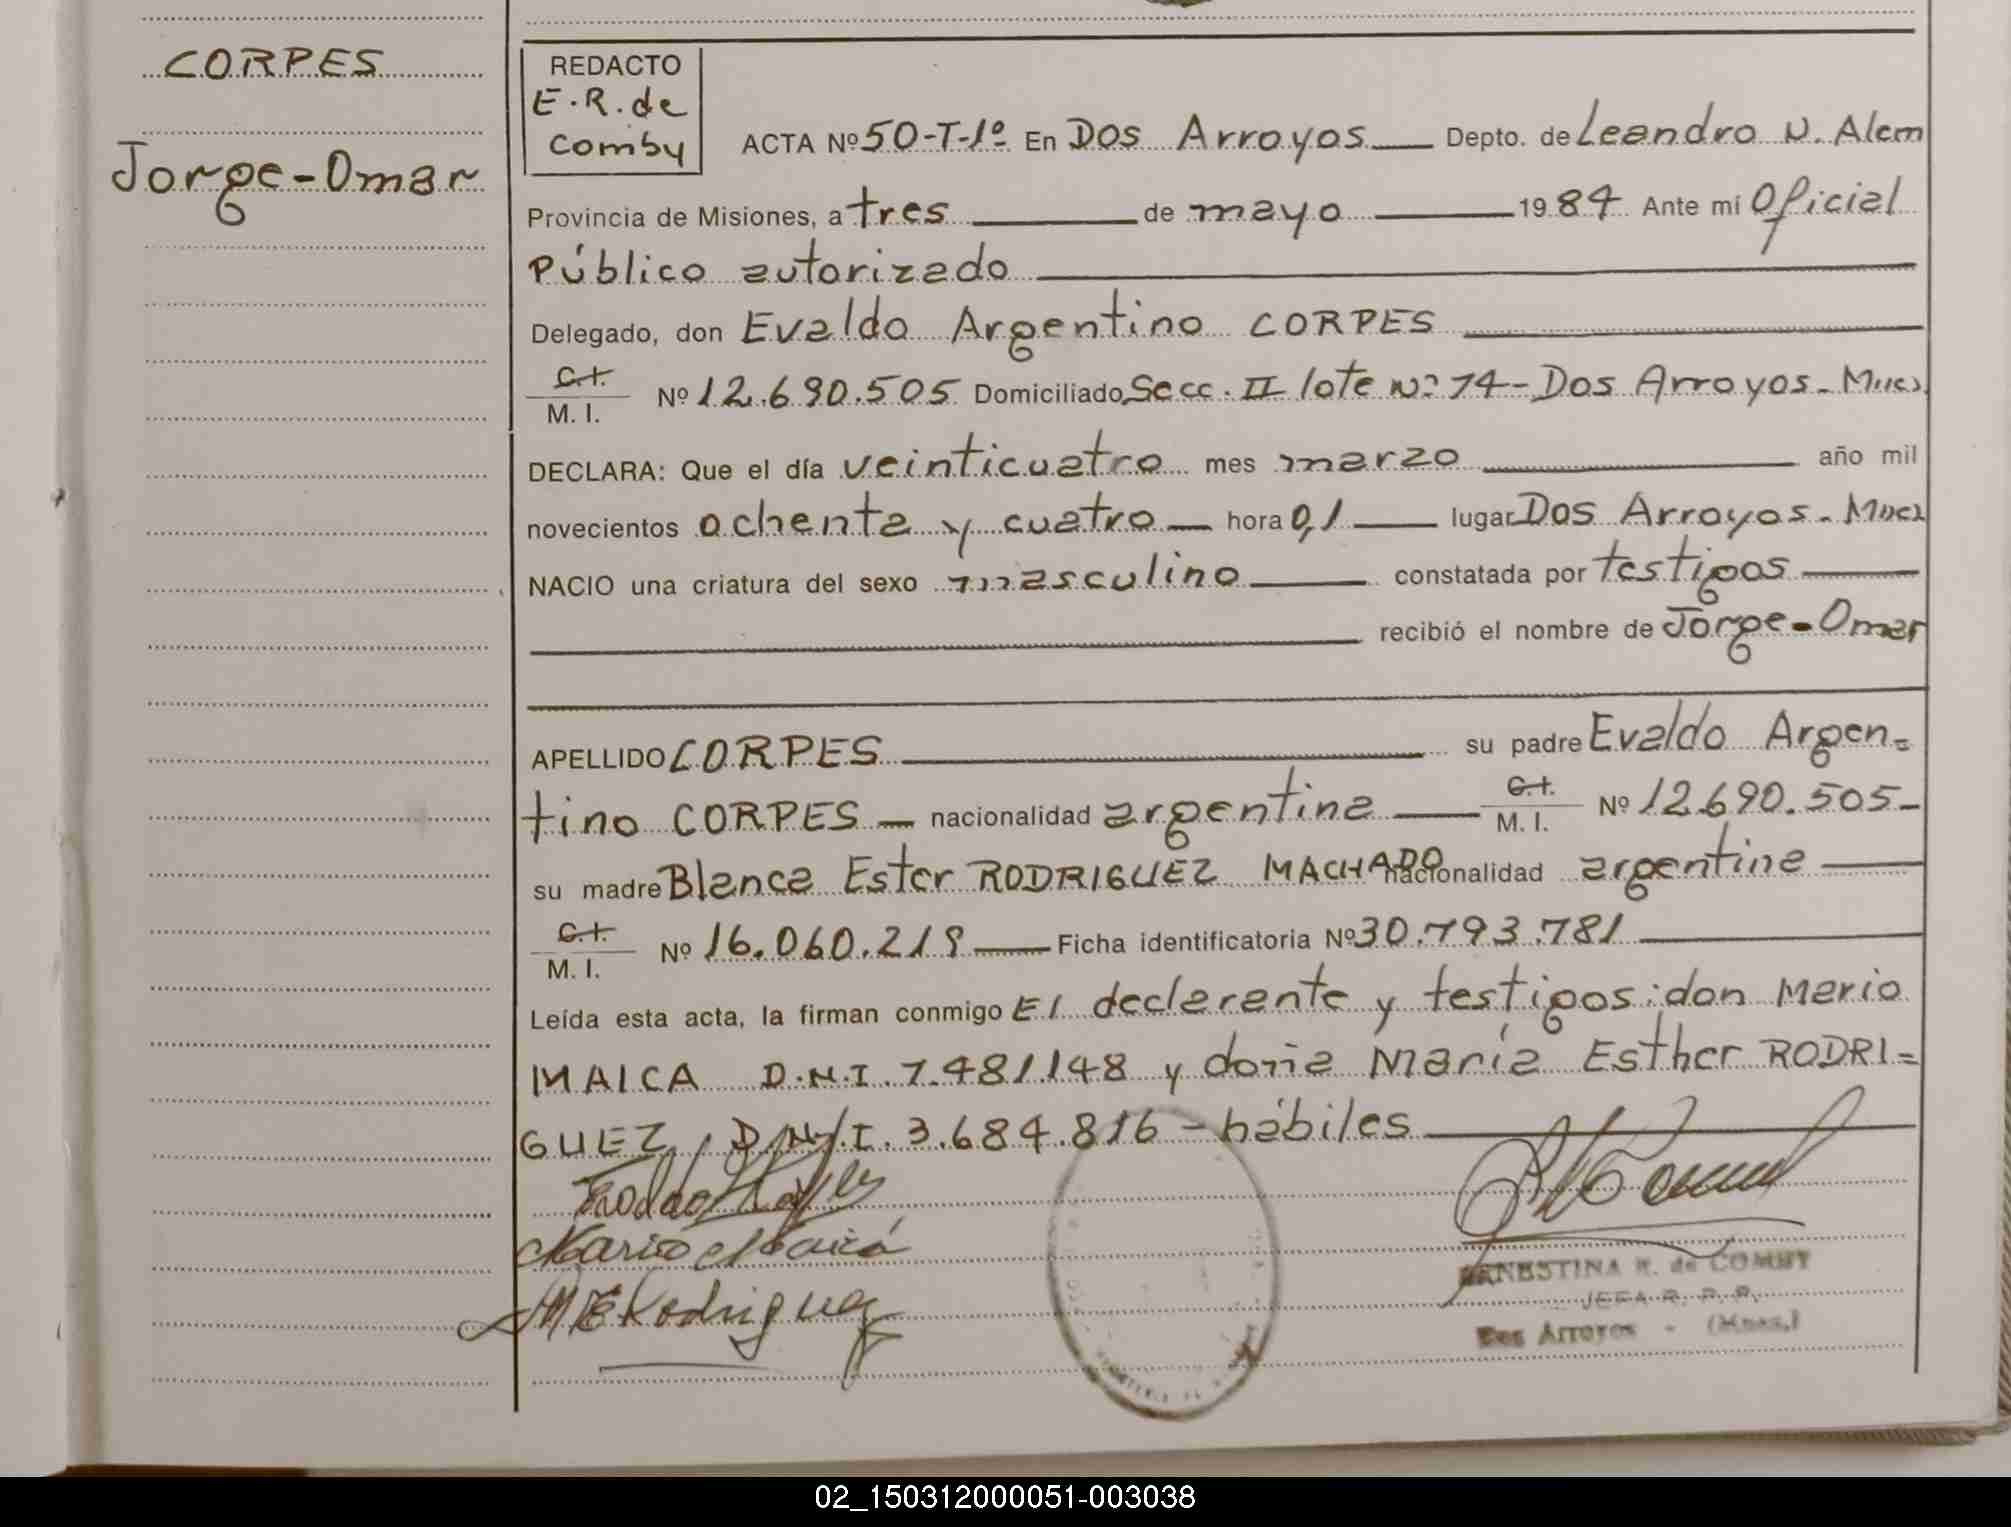 CORPES
Jorge-Omar
REDACTO
E.R. de
Comby
ACTA Nº 50-T-1º En Dos Arroyos Depto. de Leandro N. Alem
Provincia de Misiones, a tres de mayo 1984 Ante mí Oficial
Público autorizado
Delegado, don Evaldo Argentino CORPES
C.I.
M. I. Nº 12.690.505 Domiciliado Secc. II lote Nº 14- Dos Arroyos-
DECLARA: Que el día veinticuatro mes marzo año mil
novecientos ochenta y cuatro hora 0,1 lugar Dos Arroyos-
NACIO una criatura del sexo masculino constatada por testigos
recibió el nombre de Jorge-Omar
APELLIDO CORPES su padre Evaldo Argen=
tino CORPES nacionalidad argentina C.I. M. I. Nº 12.690.505-
su madre Blanca Ester RODRIGUEZ MACHADO nacionalidad argentina
C.I.
M. I. Nº 16.060.219 Ficha identificatoria Nº 30.793.781
Leída esta acta, la firman conmigo El declarante y testigos: don Mario
MAICA D.N.I. 7.481.148 y doña María Esther RODRI=
GUEZ, D.N.I. 3.684.816 - hábiles
Mario Maicá
M E Rodriguez
ERNESTINA R. de COMBY
JEFA R. P. P.
Dos Arroyos - (Mnes.)
02_150312000051-003038